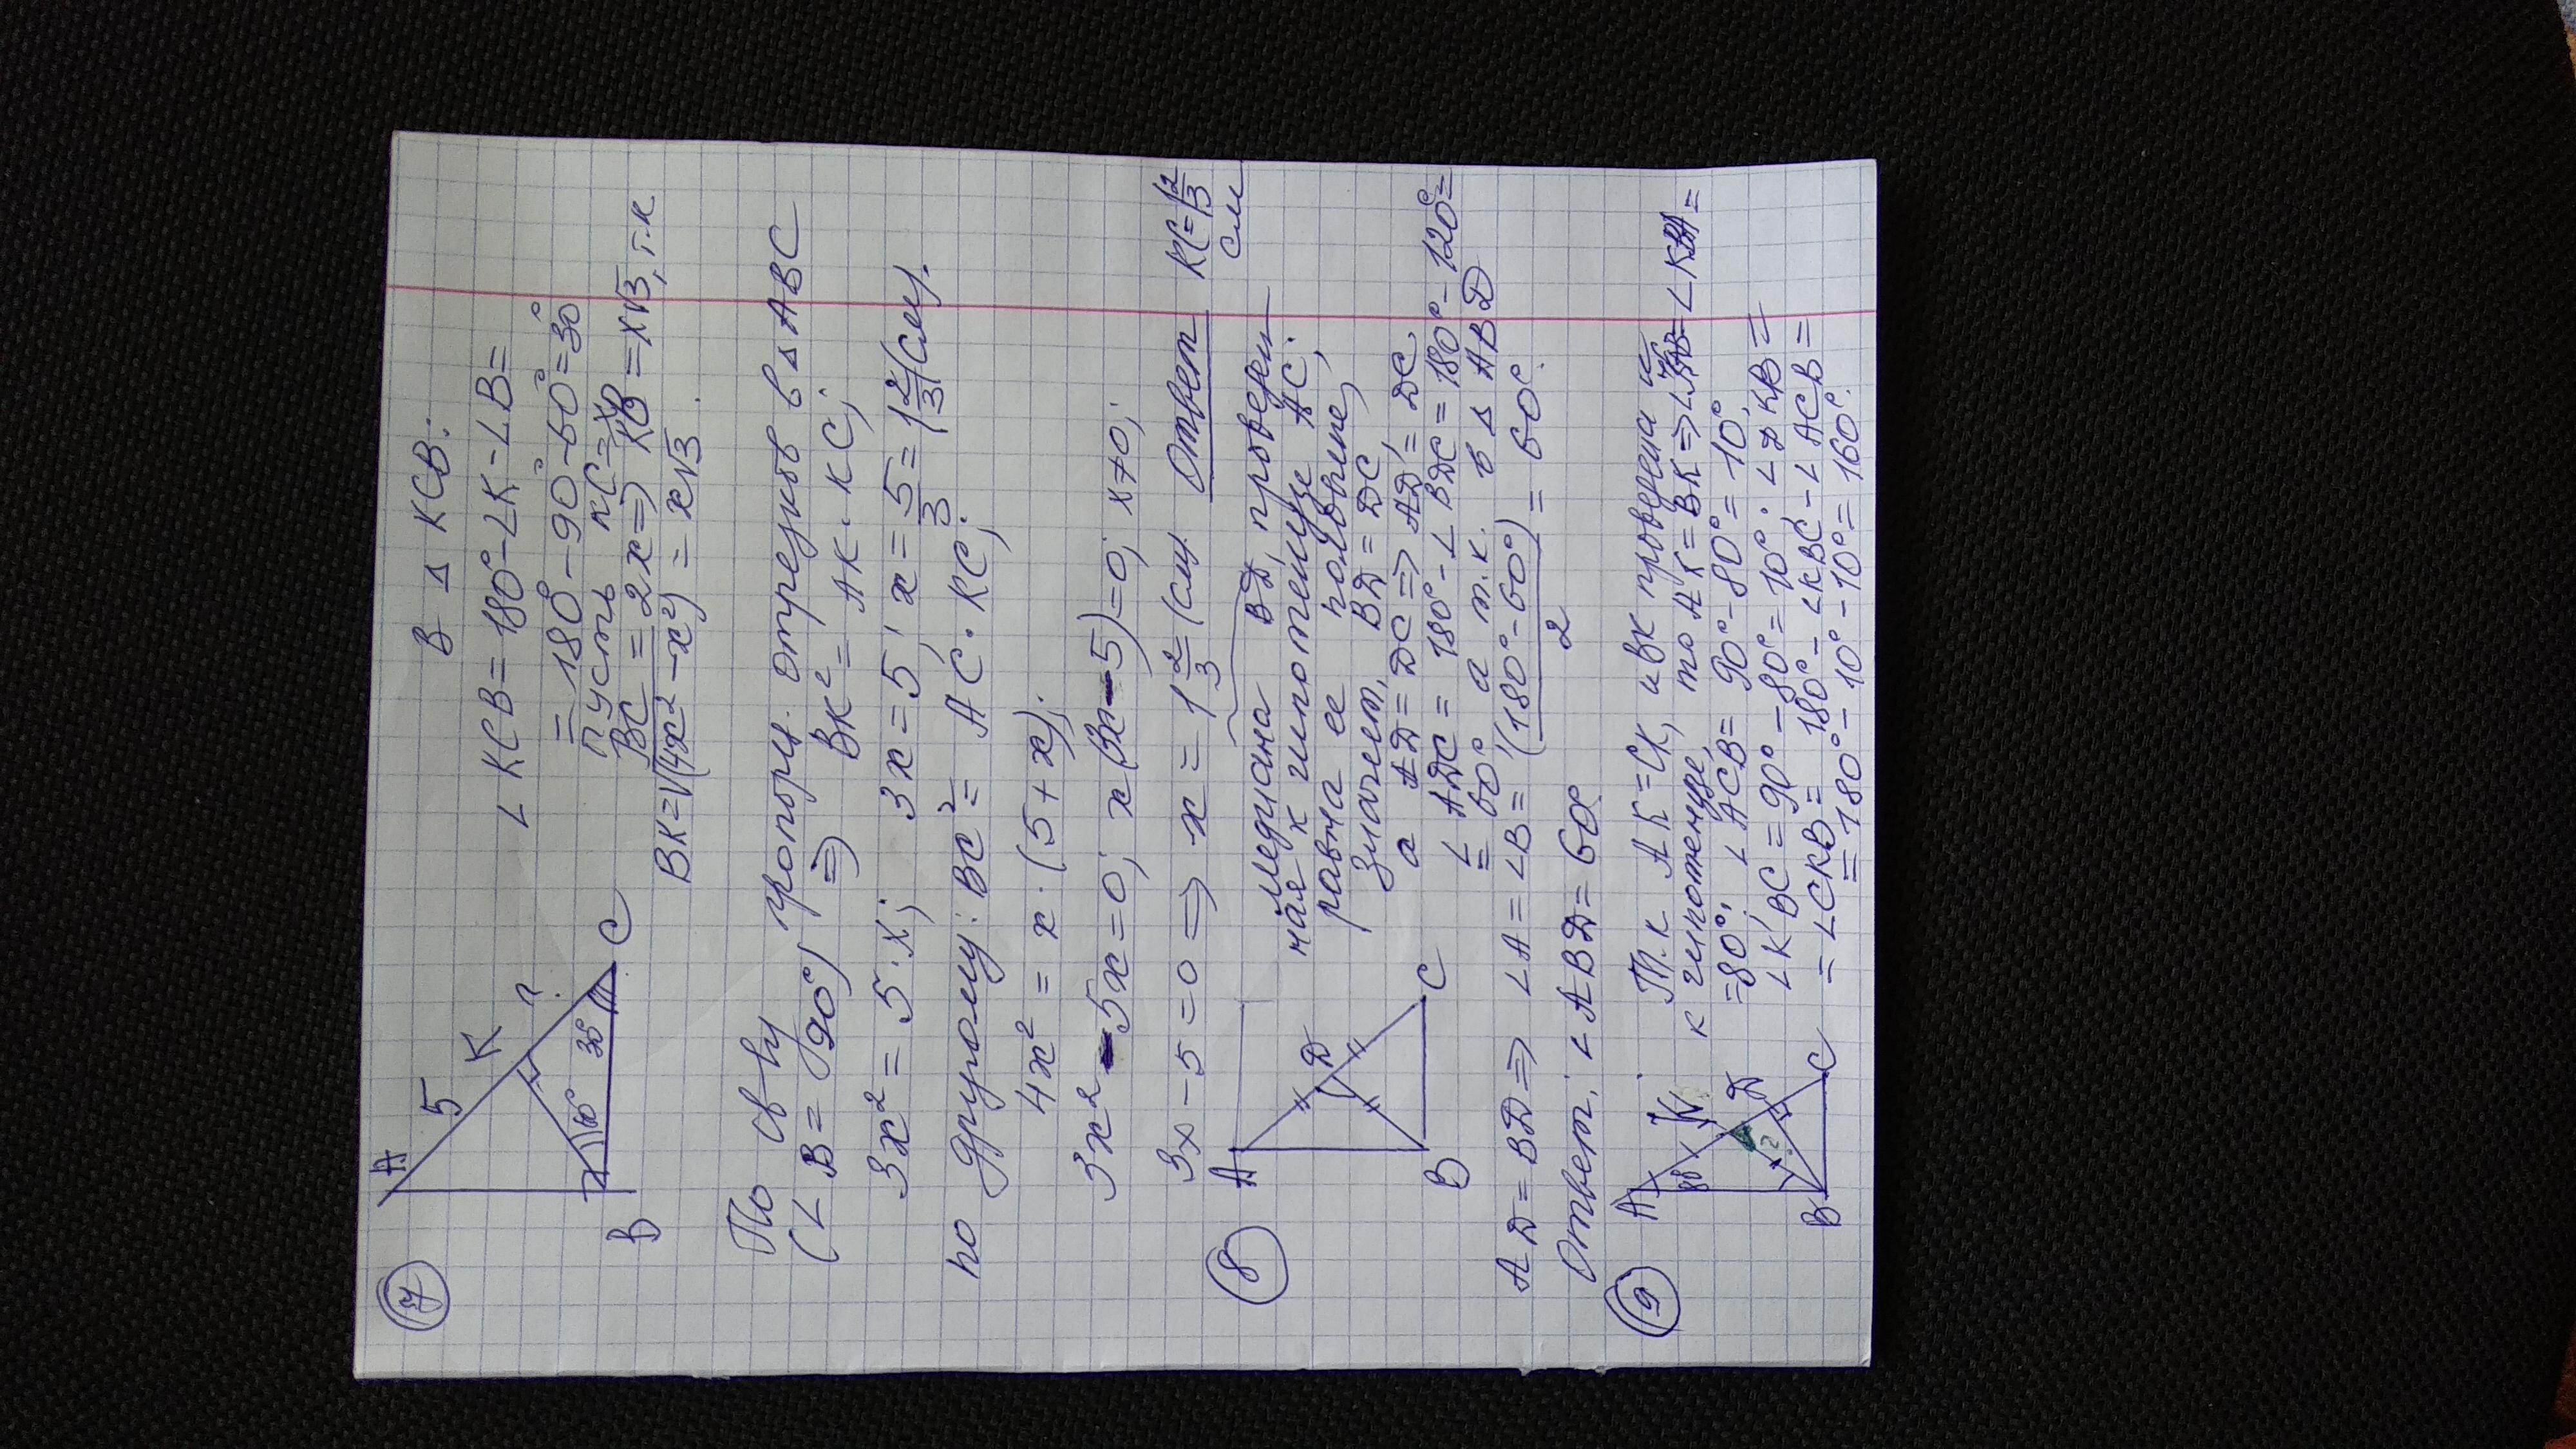 7
В Δ KCB:
A
5
K
?
60°
30°
B
C
∠ KCB = 180° - ∠K - ∠B =
= 180° - 90° - 60° = 30°
пусть KC = x
BC = 2x ⇒ KB = x√3, т.к
BK = √(4x² - x²) = x√3.
По св-ву пропорц. отрезков в Δ ABC
(∠ B = 90°) ⇒ BK² = AK · KC;
3x² = 5 · x; 3x = 5; x = 5/3 = 1 2/3 (см).
по другому: BC² = AC · KC;
4x² = x · (5 + x);
3x² - 5x = 0; x(3x - 5) = 0; x ≠ 0;
3x - 5 = 0 ⇒ x = 1 2/3 (см). Ответ KC = 1 2/3
см
8
A
D
B
C
медиана BD, проведен-
ная к гипотенузе AC,
равна ее половине,
значит, BD = DC
а AD = DC ⇒ AD = DC,
∠ ADC = 180° - ∠ BDC = 180° - 120° =
= 60° а т.к. в Δ ABD
AD = BD ⇒ ∠A = ∠B = (180° - 60°)/2 = 60°.
Ответ: ∠ ABD = 60°
9
A
80
K
D
?
B
C
Т.к AK = CK, и BK проведена к
к гипотенузе, то AK = BK ⇒ = ∠ KBA =
= 80°, ∠ ACB = 90° - 80° = 10°,
∠ KBC = 90° - 80° = 10°. ∠ DKB =
= ∠CKB = 180° - ∠KBC - ∠ ACB =
= 180° - 10° - 10° = 160°.